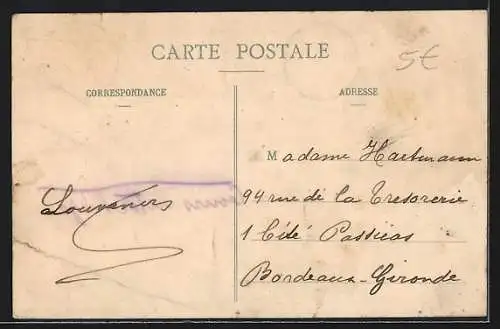 CARTE POSTALE
5€
CORRESPONDANCE
ADRESSE
Madame Hartmann
94 rue de la Tresorerie
1 Cité
Bordeaux-Gironde
Souvenirs